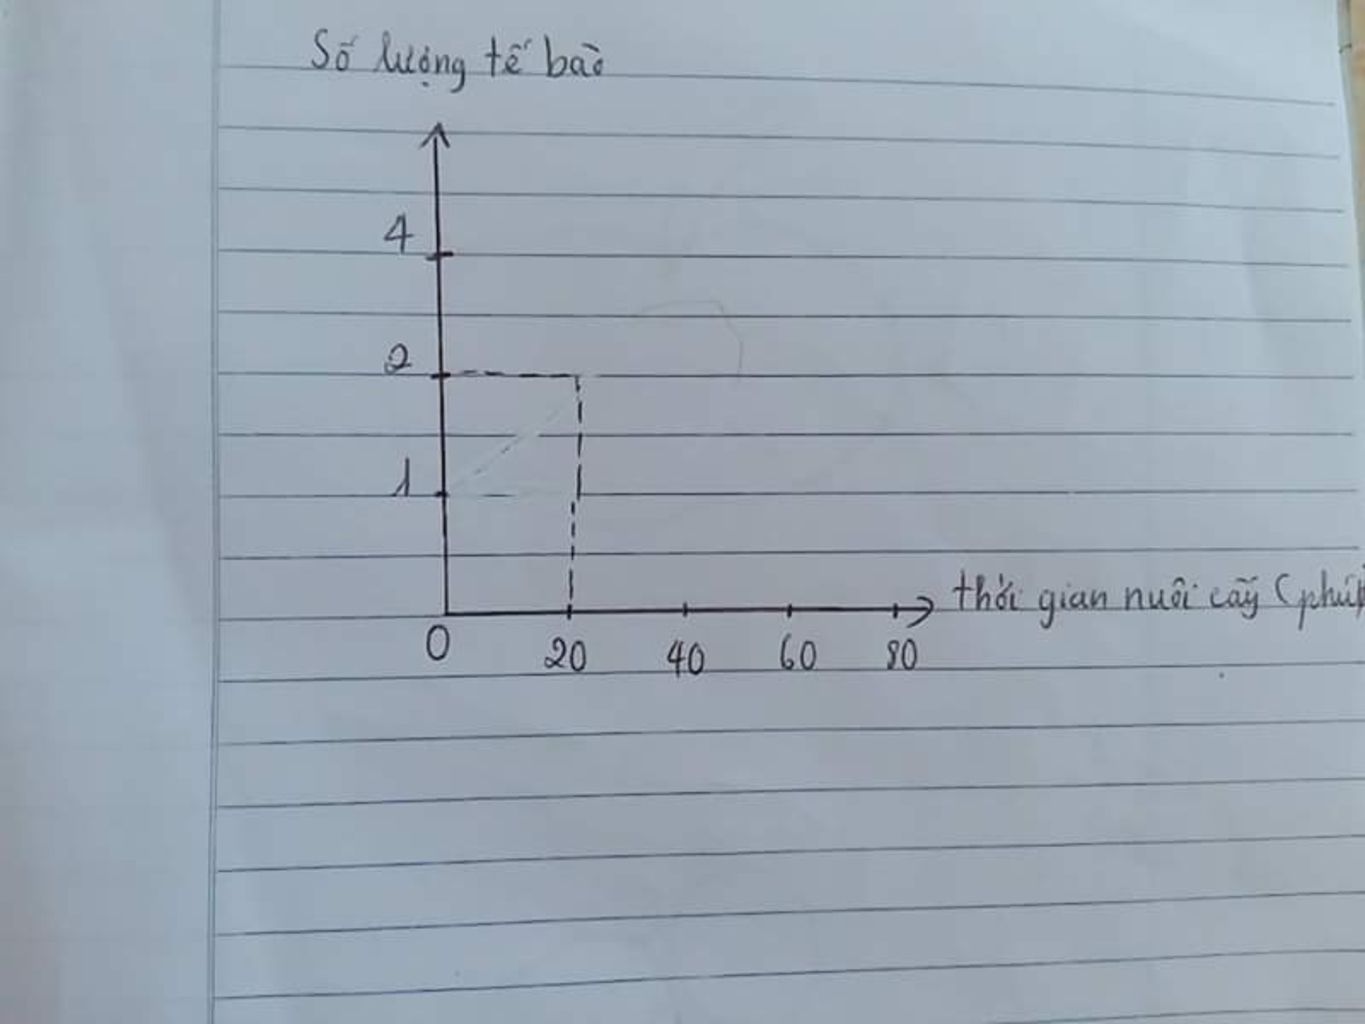 Số lượng tế bào
4
2
1
0 20 40 60 80
thời gian nuôi cấy (phút